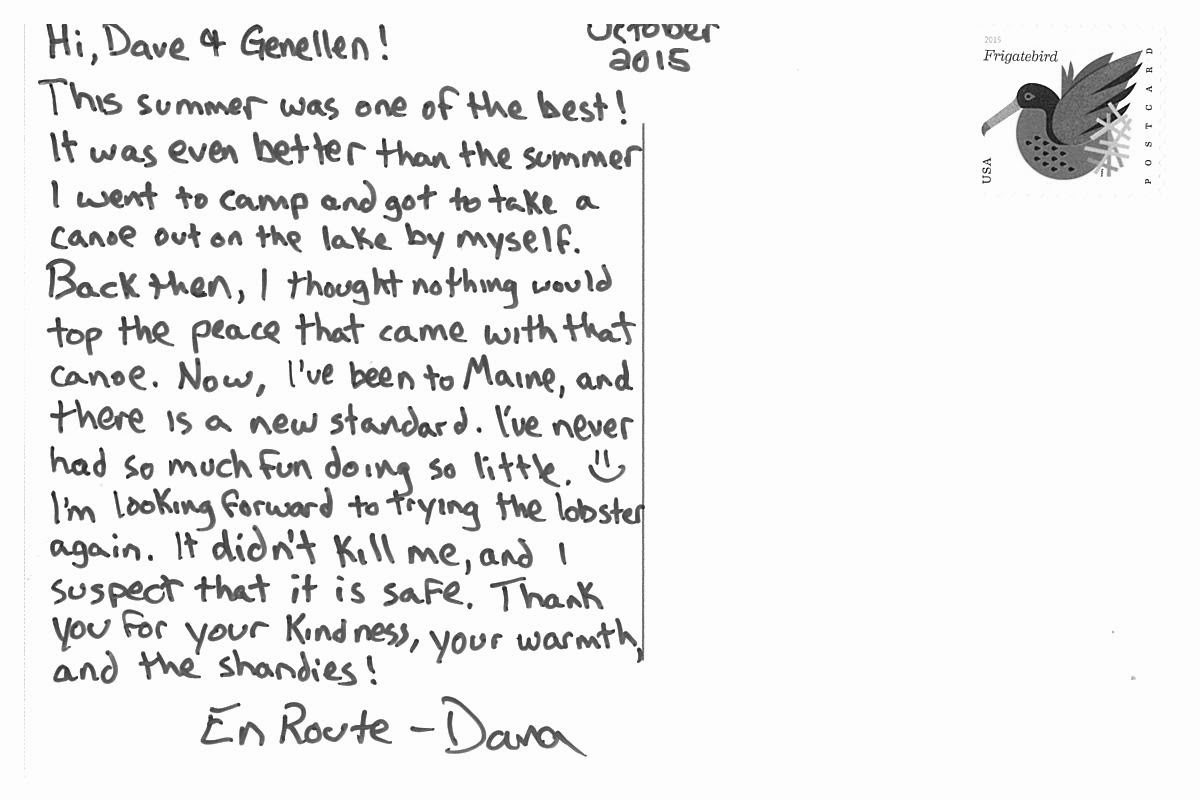 Hi, Dave & Genellen!
October
2015
This summer was one of the best!
It was even better than the summer
I went to camp and got to take a
canoe out on the lake by myself.
Back then, I thought nothing would
top the peace that came with that
canoe. Now, I've been to Maine, and
there is a new standard. I've never
had so much fun doing so little.
I'm looking forward to trying the lobster
again. It didn't kill me, and I
suspect that it is safe. Thank
you for your kindness, your warmth,
and the shandies!
En Route - Dana
2015
Frigatebird
USA
POSTCARD